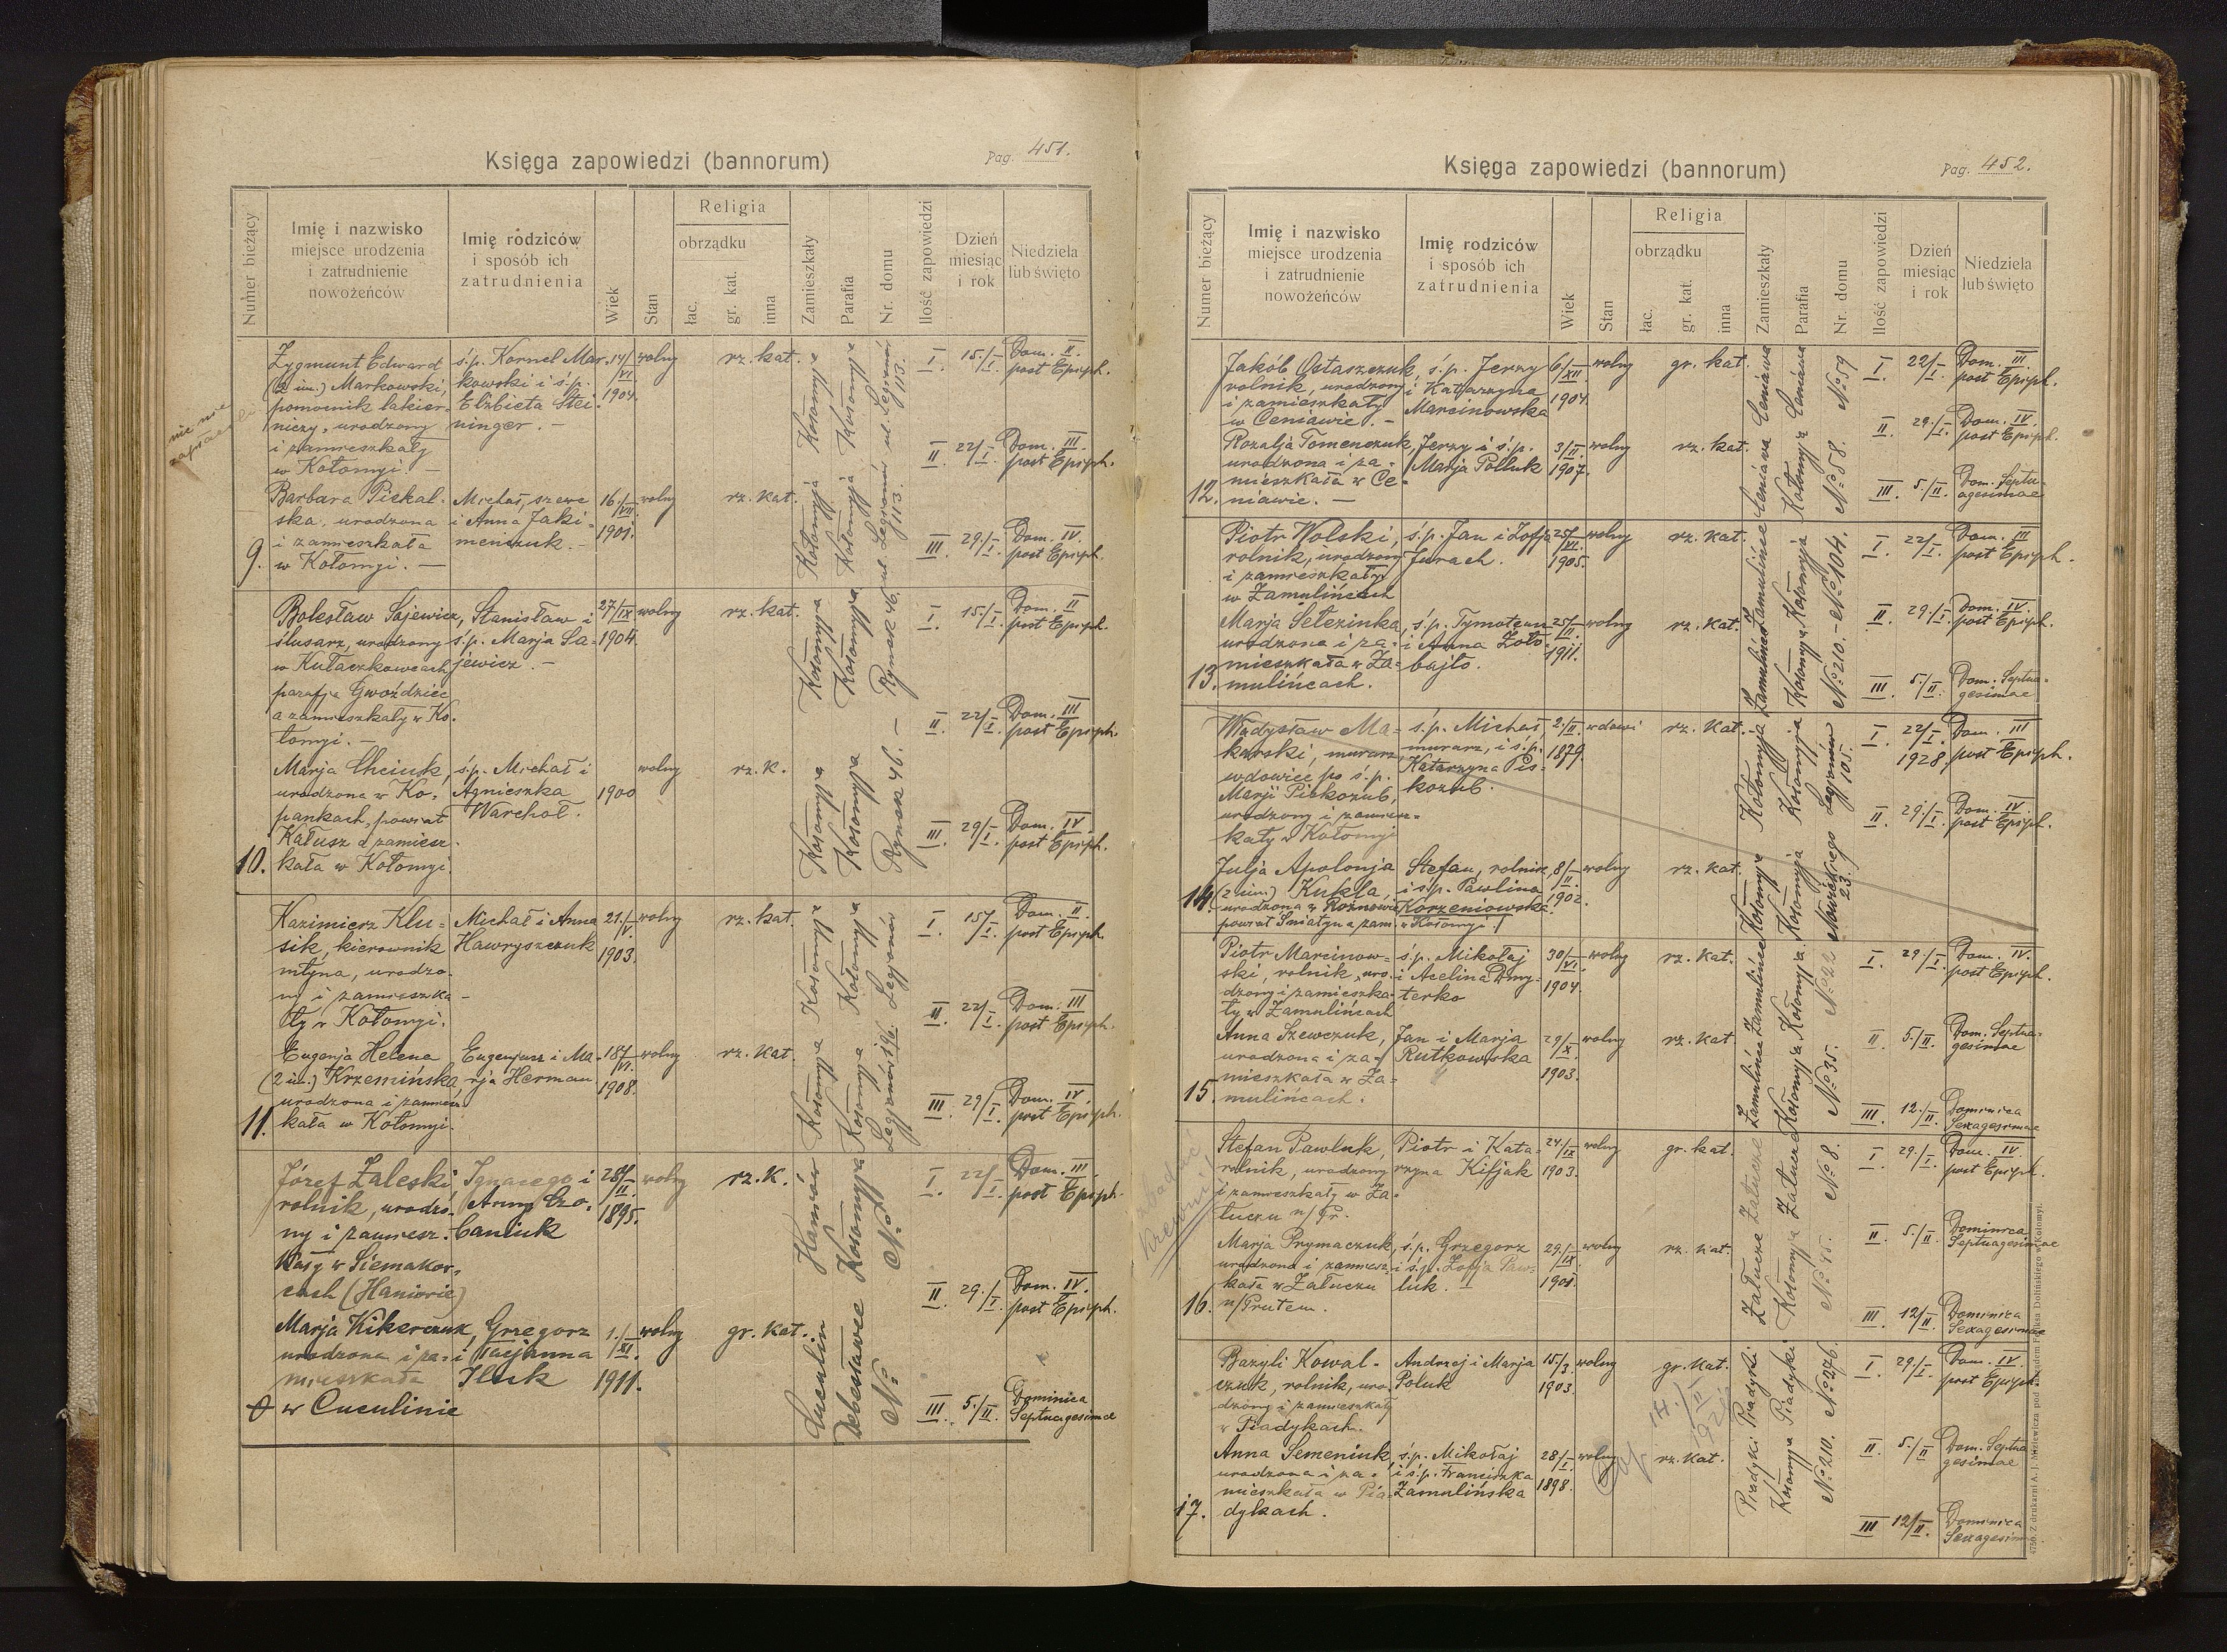 Księga zapowiedzi (bannorum)
Pag. 451.
Numer bieżący
Imię i nazwisko
miejsce urodzenia
i zatrudnienie
nowożeńców
Imię rodziców
i sposób ich
zatrudnienia
Wiek
Stan
Religia
obrządku
łac.
gr. kat.
inna
Zamieszkały
Parafia
Nr. domu
Ilość zapowiedzi
Dzień
miesiąc
i rok
Niedziela
lub święto
9.
Zygmunt Edward
(2 im.) Markowski,
pomocnik lakier-
niczy, urodzony
i zamieszkały
w Kołomyi. —
ś.p. Kornel Mar-
kowski i ś.p.
Elżbieta Stei-
ninger. —
14/VI. 1904.
wolny
rz. kat.
Kołomyja
Kołomyja
ul. Legionów 113.
I 15./I Dom. II. post Epiph.
II 22/I Dom. III. post Epiph.
III 29./I. Dom. IV. post Epiph.
Barbara Piskal-
ska, urodzona
i zamieszkała
w Kołomyi. —
Michał, szewc
i Anna Jaki-
meńczuk. —
16./VII 1901.
wolny
rz. kat.
Kołomyja
Kołomyja
ul. Legionów 113.
10.
Bolesław Sajewicz,
ślusarz, urodzony
w Kułaczkowcach
parafja Gwoździec
a zamieszkały w Ko-
łomyi. —
Stanisław i
ś.p. Marja Sa-
jewicz. —
27/IX 1904.
wolny
rz. kat.
Kołomyja
Kołomyja
Rynek 46.
I. 15./I Dom. II post Epiph.
II 22/I. Dom. III post Epiph.
III 29/I. Dom. IV. post Epiph.
Marja Chciuk,
urodzona w Ko-
pankach, powiat
Kałusz a zamiesz-
kała w Kołomyi.
ś.p. Michał i
Agnieszka
Warchoł.
1900
wolny
rz. k.
Kołomyja
Kołomyja
Rynek 46. —
11.
Kazimierz Klu-
sik, kierownik
młyna, urodzo-
ny i zamieszka-
ły w Kołomyi.
Michał i Anna
Hawryszczuk
21./V. 1903.
wolny
rz. kat.
Kołomyja
Kołomyja
Legjonów
I 15/I. Dom. II. post Epiph.
II. 22/I. Dom. III post Epiph.
III 29/I. Dom. IV. post Epiph.
Eugenja Helena
(2 im.) Krzemińska,
urodzona i zamiesz-
kała w Kołomyi.
Eugenjusz i Ma-
rja Herman
18/VI. 1908.
wolny
rz. kat.
Kołomyja
Kołomyja
Legjonów 196.
Józef Zaleski,
rolnik, urodzo-
ny i zamiesz-
kały w Siemakow-
cach (Haniowie)
Ignacego i
Anny Czo-
baniuk
28/II. 1895.
wolny
rz. k.
Haniów
Kołomyja
No
I. 22/I Dom. III. post Epiph.
II. 29./I. Dom. IV. post Epiph.
III. 5./II. Dominica Septuagesimae
Marja Kikerczuk,
urodzona i za-
mieszkała
w Cuculinie
Grzegorz
i Tacjanna
Iluk
1./XI. 1911.
wolny
gr. kat.
Cuculin
Debesławce
No
Księga zapowiedzi (bannorum)
Pag. 452.
Numer bieżący
Imię i nazwisko
miejsce urodzenia
i zatrudnienie
nowożeńców
Imię rodziców
i sposób ich
zatrudnienia
Wiek
Stan
Religia
obrządku
łac.
gr. kat.
inna
Zamieszkały
Parafia
Nr. domu
Ilość zapowiedzi
Dzień
miesiąc
i rok
Niedziela
lub święto
12.
Jakób Ostaszczuk,
rolnik, urodzony
i zamieszkały
w Ceniawie. —
ś.p. Jerzy
i Katarzyna
Marcinowska
6./XII 1904.
wolny
gr. kat.
Ceniawa
Ceniawa
No 59
I. 22/I Dom. III post Epiph.
II. 29./I. Dom. IV. post Epiph.
III. 5./II. Dom. Septuagesimae
Rozalja Tomenczuk,
urodzona i za-
mieszkała w Ce-
niawie. —
Jerzy i ś.p.
Marja Polluk
3/II. 1907.
wolny
rz. kat.
Ceniawa
Kołomyja
No 58.
13.
Piotr Wolski,
rolnik, urodzony
i zamieszkały
w Zamulińcach
ś.p. Jan i Zofja
Jurach.
25/VI. 1905.
wolny
rz. kat.
Zamulińce
Kołomyja
No 104.
I. 22/I. Dom. III post Epiph.
II 29./I. Dom. IV. post Epiph.
III. 5./II. Dom. Septuagesimae
Marja Selezinka,
urodzona i za-
mieszkała w Za-
mulińcach.
ś.p. Tymoteusz
i Anna Zoło-
bajło.
25/II. 1911.
wolny
rz. kat.
Zamulińce
Kołomyja
No 210. —
14.
Władysław Ma-
karski, murarz,
wdowiec po ś.p.
Marji Piskozub,
urodzony i zamiesz-
kały w Kołomyi
ś.p. Michał,
murarz, i ś.p.
Katarzyna Pis-
kozub.
2./II. 1879.
wdowi
rz. kat.
Kołomyja
Kołomyja
Legjonów 105.
I. 22/I. 1928. Dom. III post Epiph.
II. 29./I. Dom. IV. post Epiph.
Julja Apolonja
(2 im.) Kukla,
urodzona w Rożnowie
powiat Śniatyn a zam. w Kołomyi.
Stefan, rolnik,
i ś.p. Pawlina
Korzeniowska.
8/II. 1902.
wolny
rz. kat.
Kołomyja
Kołomyja
23.
15.
Piotr Marcinow-
ski, rolnik, uro-
dzony i zamieszka-
ły w Zamulińcach
ś.p. Mikołaj
i Acelina Dmy-
terko
30/VI. 1904.
wolny
rz. kat.
Zamulińce
Kołomyja
No 22
I. 29./I. Dom. IV. post Epiph.
II. 5./II. Dom. Septuagesimae
III. 12./II. Dominica Sexagesimae
Anna Szewczuk,
urodzona i za-
mieszkała w Za-
mulińcach.
Jan i Marja
Rutkowska
29/X. 1903.
wolny
rz. kat.
Zamulińce
Kołomyja
No 35.
16.
Stefan Pawluk,
rolnik, urodzony
i zamieszkały w Za-
łuczu n/Pr.
Piotr i Kata-
rzyna Kifjak
24/IX 1903.
wolny
gr. kat.
Załucze
Załucze
No 8.
I. 29./I. Dom. IV. post Epiph.
II. 5./II. Dominica Septuagesimae
III 12/II. Dominica Sexagesimae
Marja Prymaczuk,
urodzona i zamiesz-
kała w Załuczu
n/Prutem.
ś.p. Grzegorz
i ś.p. Zofja Paw-
luk. —
29./IX.
wolny
rz. kat.
Załucze
Kołomyja
17.
Bazyli Kowal-
czuk, rolnik, uro-
dzony i zamieszkały
w Piadykach.
Andrzej i Marja
Poluk
15/3. 1903.
wolny
gr. kat.
Piadyki
Piadyki
No 276.
I 29./I. Dom. IV. post Epiph.
II. 5./II Dom. Septuagesimae
III 12/II. Dominica Sexagesimae
Anna Semeniuk,
urodzona i za-
mieszkała w Pia-
dykach.
ś.p. Mikołaj
i ś.p. Franciszka
Zamulińska
28/I. 1898.
wolny
rz. kat.
Piadyki
Kołomyja
No 210.